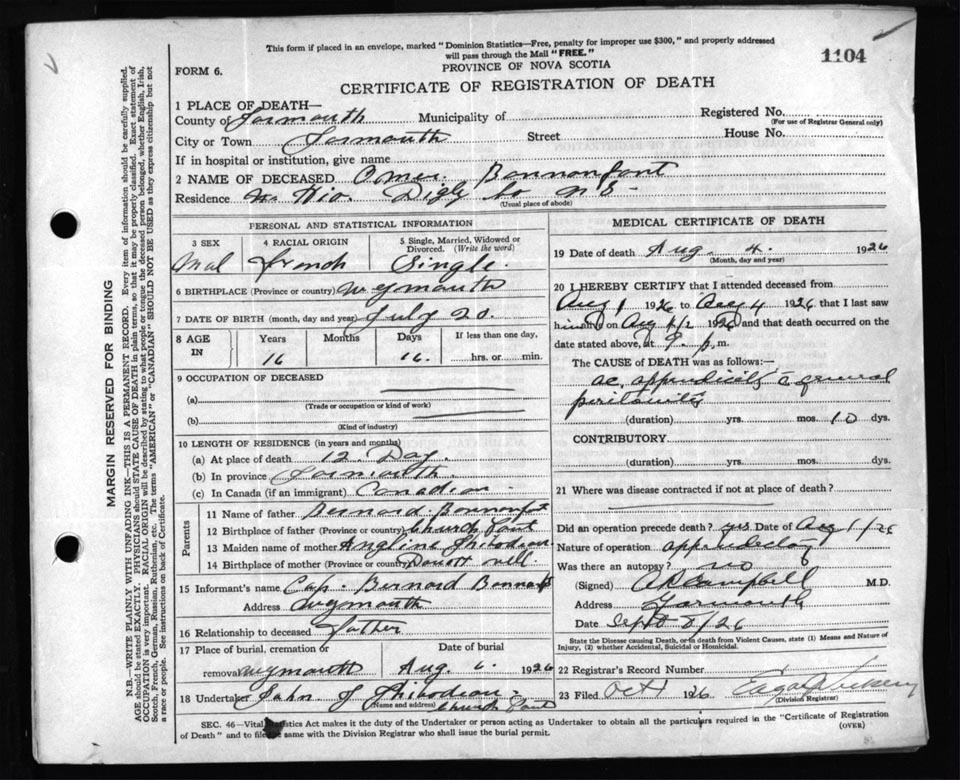 This form if placed in an envelope, marked "Dominion Statistics—Free, penalty for improper use $300," and properly addressed
will pass through the Mail "FREE."
1104
PROVINCE OF NOVA SCOTIA
FORM 6.
CERTIFICATE OF REGISTRATION OF DEATH
1 PLACE OF DEATH—
County of Yarmouth Municipality of Registered No.
(For use of Registrar General only)
City or Town Yarmouth Street House No.
If in hospital or institution, give name
2 NAME OF DECEASED Omer Bonnenfant
Residence Digby Co N S
(Usual place of abode)
PERSONAL AND STATISTICAL INFORMATION
3 SEX 4 RACIAL ORIGIN 5 Single, Married, Widowed or Divorced. (Write the word)
Mal French Single
6 BIRTHPLACE (Province or country) Weymouth
7 DATE OF BIRTH (month, day and year) July 20
8 AGE IN Years Months Days If less than one day,
16 16 hrs. or min.
9 OCCUPATION OF DECEASED
(a)
(Trade or occupation or kind of work)
(b)
(Kind of industry)
10 LENGTH OF RESIDENCE (in years and months)
(a) At place of death 12 Day
(b) In province Yarmouth
(c) In Canada (if an immigrant) Canadian
Parents
11 Name of father Bernard Bonnenfant
12 Birthplace of father (Province or country) Church Point
13 Maiden name of mother Angline Thibodeau
14 Birthplace of mother (Province or country)
15 Informant's name Cap. Bernard
Address Weymouth
16 Relationship to deceased father
17 Place of burial, cremation or removal Weymouth Date of burial Aug 6 1926
18 Undertaker John J Thibodeau
(Name and address) Church Point
MEDICAL CERTIFICATE OF DEATH
19 Date of death Aug. 4. 1926
(Month, day and year)
20 I HEREBY CERTIFY that I attended deceased from
Aug 1 1926 to Aug 4 1926 that I last saw
him on Aug 1926 and that death occurred on the
date stated above, at 9 p.m.
The CAUSE of DEATH was as follows:—
ac. appendicitis c general
peritonitis
(duration) yrs. mos. 10 dys.
CONTRIBUTORY
(duration) yrs. mos. dys.
21 Where was disease contracted if not at place of death?
Did an operation precede death? yes Date of Aug 1/26
Nature of operation appendectomy
Was there an autopsy? no
(Signed) Campbell M.D.
Address Yarmouth
Date Sept 8/26
State the Disease causing Death, or in death from Violent Causes, state (1) Means and Nature of
Injury, (2) whether Accidental, Suicidal or Homicidal.
22 Registrar's Record Number
23 Filed Oct 1 1926
(Division Registrar)
SEC. 46—Vital Statistics Act makes it the duty of the Undertaker or person acting as Undertaker to obtain all the particulars required in the "Certificate of Registration
of Death" and to file same with the Division Registrar who shall issue the burial permit. (OVER)
MARGIN RESERVED FOR BINDING
N.B.—WRITE PLAINLY WITH UNFADING INK—THIS IS A PERMANENT RECORD. Every item of information should be carefully supplied.
AGE should be stated EXACTLY. PHYSICIANS should STATE CAUSE OF DEATH in plain terms, so that it may be properly classified. Exact statement of
OCCUPATION is very important. RACIAL ORIGIN will be described by stating to what people or tongue the deceased person belonged, whether English, Irish,
Scotch, French, German, Russian, Ruthenian, etc. The terms "AMERICAN" or "CANADIAN" SHOULD NOT BE USED as they express citizenship but not
a race or people. See instructions on back of Certificate.